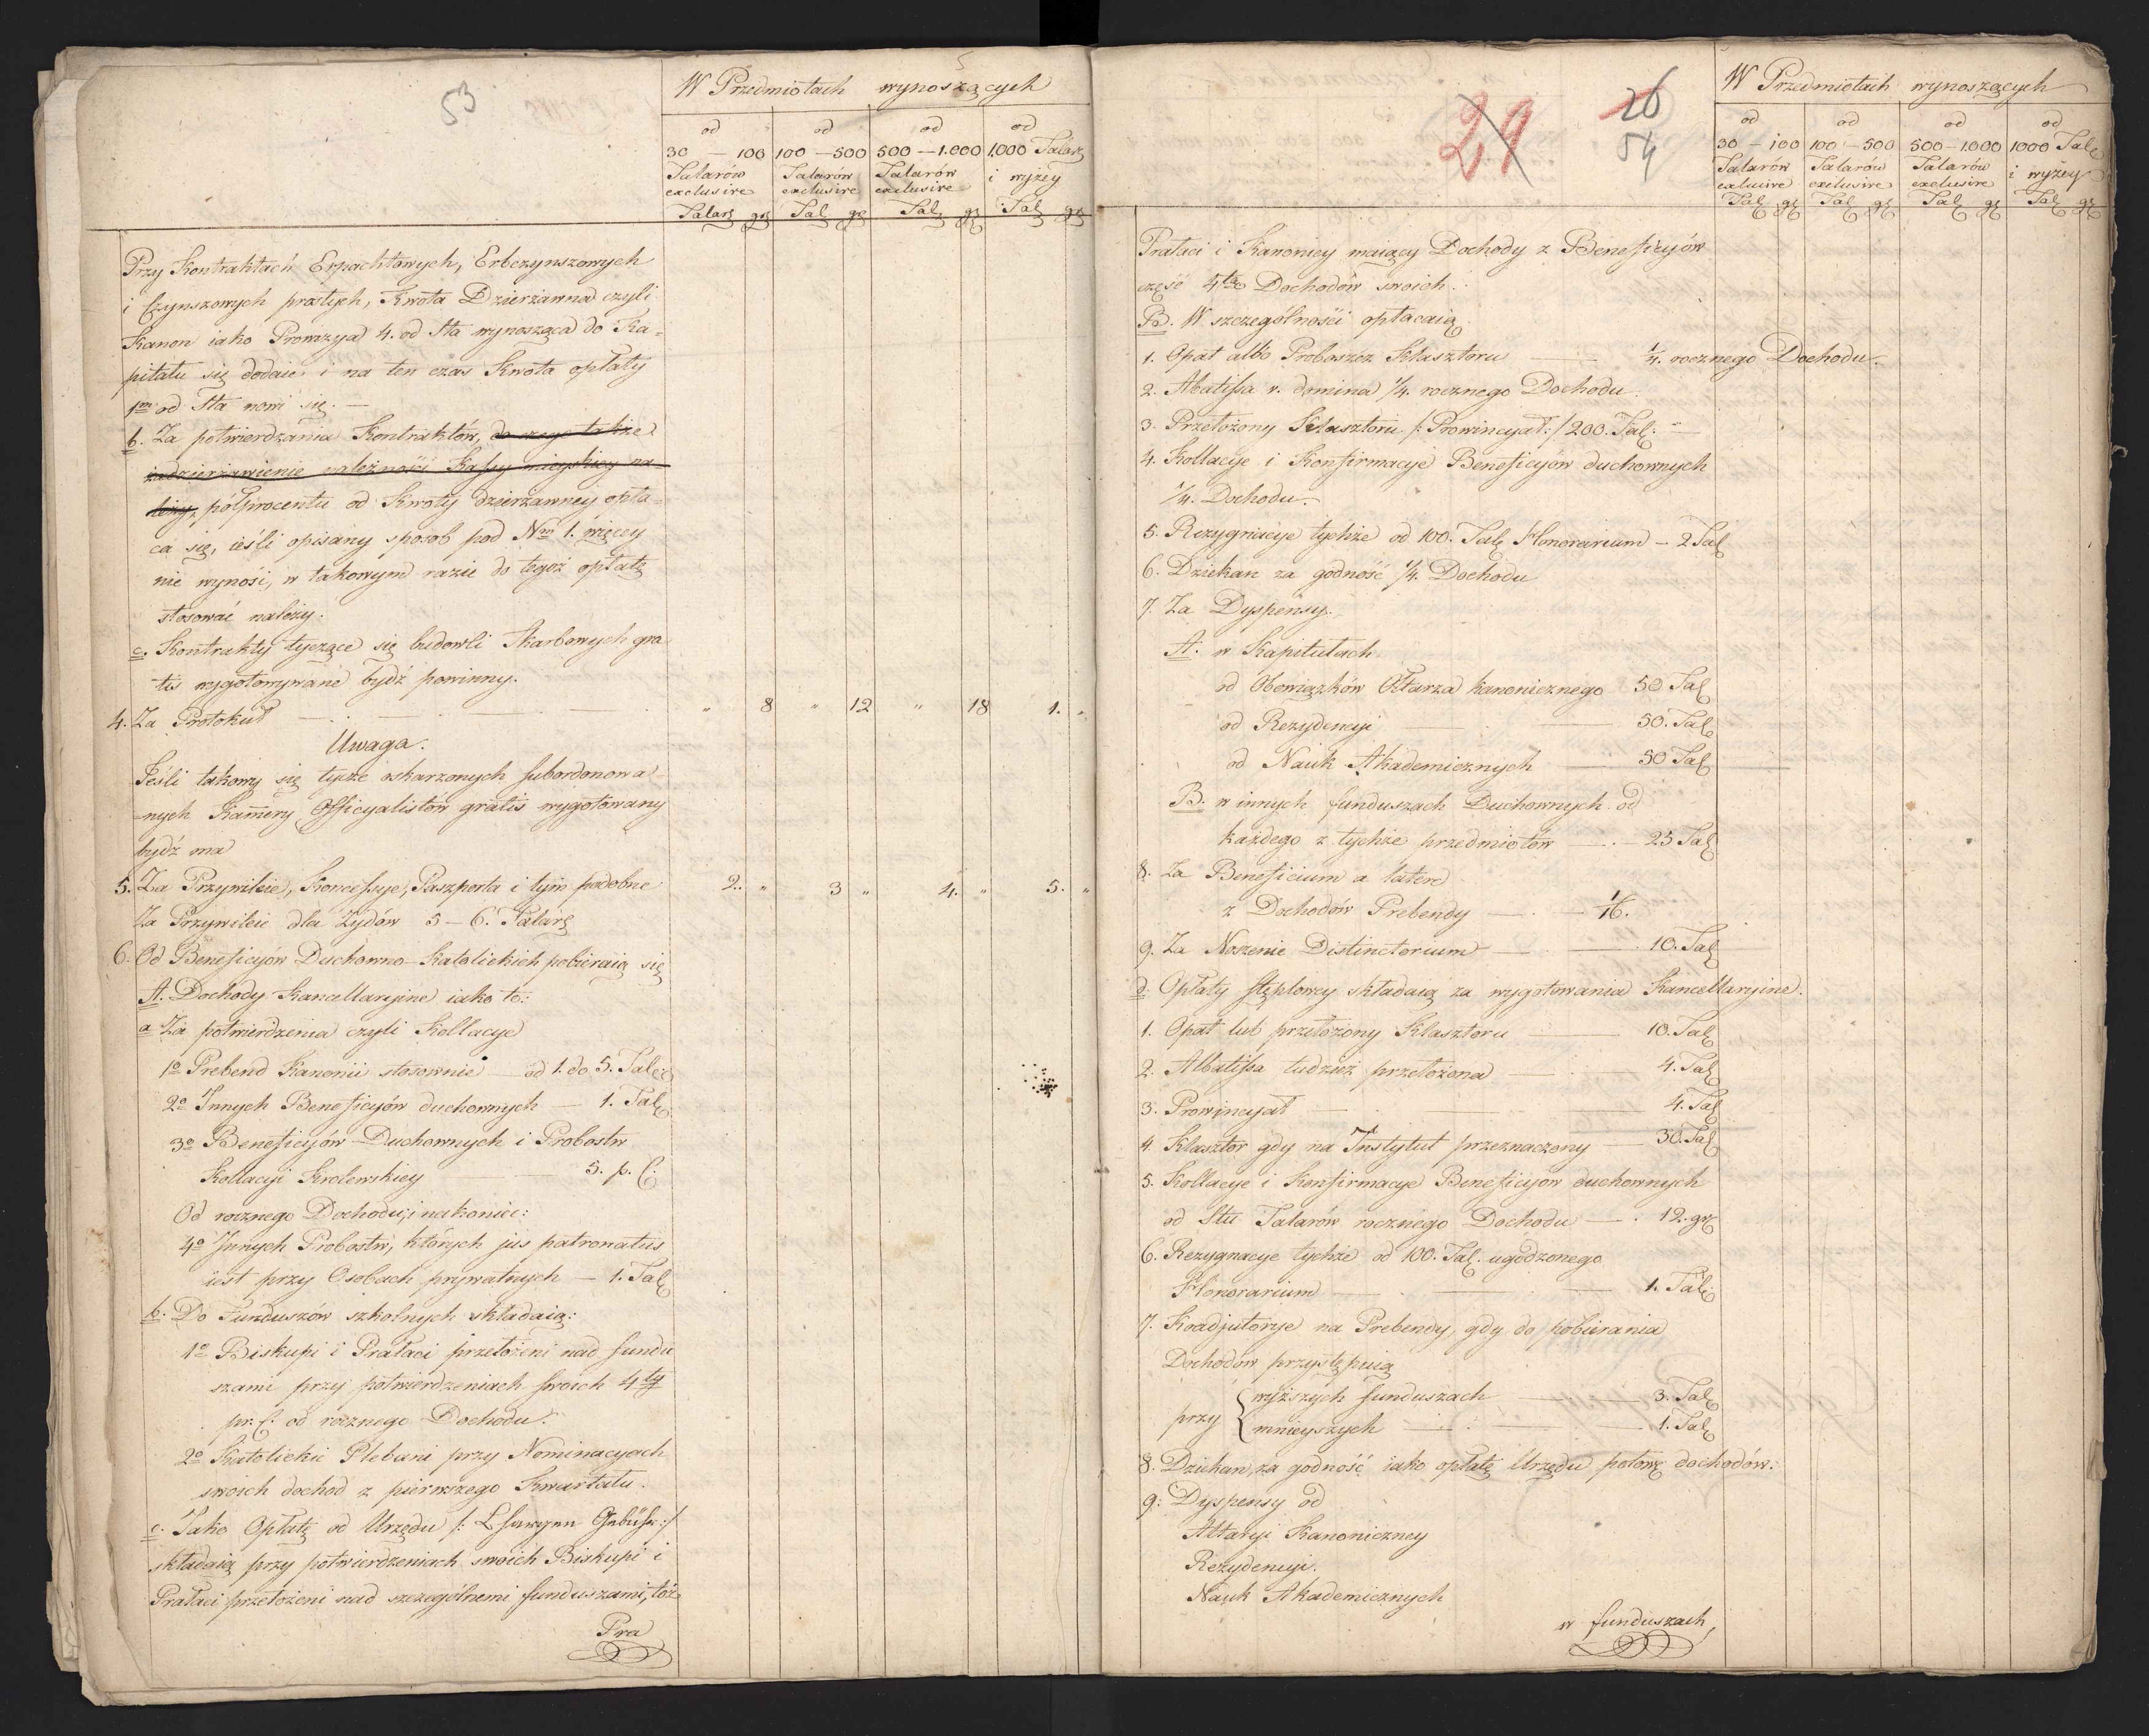 53
W Przedmiotach wynoszących
od od od od
30 — 100 100 — 500 500 — 1.000 1,000 Talar
Talarów Talarów Talarów i wyżey
exclusive exclusive exclusive
Talar gr Tal gr Tal gr Tal gr
Przy Kontraktach Erpachtowych, Erbczynszowych
i Czynszowych prostych, Kwota Dzierżawna czyli
Kanon iako Prowizya 4. od Sta wynosząca do Ka-
pitału się dodaie i na ten czas Kwota opłaty
od Sta się. —
b. Za potwierdzania Kontraktów, do czego także
zadzierżawienie należności Kassy mieyskiey na-
leży, półprocentu od Kwoty dzierżawney opła-
ca się, ieśli opisany sposob pod Nro 1. więcey
nie wynosi, w takowym razie do tegoż opłatę
stosować należy.
c. Kontrakty tyczące się budowli Skarbowych gra
tis wygotowywane bydź powinny.
4. Za Protokuł — " 8 " 12 " 18 1. "
Uwaga.
Jeśli takowy się tycze oskarzonych subordonowa-
-nych Kamery Officyalistów gratis wygotowany
bydź ma
5. Za Przywileie, Koncessye, Paszporta i tym podobne 2. " 3 " 4. " 5. "
Za Przywileie dla Zydów 5 — 6. Talar
6. Od Beneficyów Duchowno-Katolickich pobieraią się
A. Dochody Kancellaryine iako to:
a Za potwierdzenia czyli Kollacye
1o Prebend Kanonii stosownie — od 1. do 5. Tal
2o Innych Beneficyów duchownych — 1. Tal
3o Beneficyów Duchownych i Probostw
Kollacyi Krolewskiey — 5. p. C.
Od rocznego Dochodu; i nakoniec:
4o Innych Probostw, których jus patronatus
iest przy Osobach prywatnych — 1. Tal
b. Do Funduszów szkolnych składaią:
1o Biskupi i Prałaci przełożeni nad fundu
szami przy potwierdzeniach swoich 4ty
pr. C. od rocznego Dochodu.
2o Katolickie Plebani przy Nominacyach
swoich dochod z pierwszego Kwartału.
c. Jako Opłatę od Urzędu /: Chargen Gebühr :/
składaią przy potwierdzeniach swoich Biskupi i
Prałaci przełożeni nad szczególnemi funduszami, toż
Pra
29 26
54
W Przedmiotach wynoszących
od od od od
30 — 100 100 — 500 500 — 1000 1000 Tal
Talarów Talarów Talarów i wyżey
exclusive exclusive exclusive
Tal gr Tal gr Tal gr Tal gr
Prałaci i Kanonicy maiący Dochody z Beneficyów
część 4tą Dochodów swoich.
B. W szczególności opłacaią
1. Opat albo Proboszcz Klasztoru — 1/4. rocznego Dochodu.
2. Abatissa v. domina 1/4. rocznego Dochodu.
3. Przełożony Klasztoru /: Prowincyał :/ 200. Tal: —
4. Kollacye i Konfirmacye Beneficyów duchownych
1/4. Dochodu.
5. Rezygnacye tychże od 100. Tal Honorarium — 2 Tal
6. Dziekan za godność 1/4. Dochodu
7. Za Dyspensy.
A. w Kapitułach
od Obowiązków Ołtarza kanonicznego 50 Tal
od Rezydencyi — 50. Tal
od Nauk Akademicznych — 50 Tal
B. w innych funduszach Duchownych od
każdego z tychże przedmiotów — 25 Tal
8. Za Beneficium a latere
z Dochodów Prebendy — 1/16.
9. Za Noszenie Distinctorium — 10. Tal
d. Opłaty stęplowey składaią za wygotowania Kancellaryine.
1. Opat lub przełożony Klasztoru — 10. Tal
2. Abatissa tudzież przełożona — 4. Tal
3. Prowincyał — 4. Tal
4. Klasztor gdy na Instytut przeznaczony — 30. Tal
5. Kollacye i Konfirmacye Beneficyow duchownych
od Stu Talarów rocznego Dochodu — 12. gr
6. Rezygnacye tychże od 100. Tal. ugodzonego
Honorarium — 1. Tal
7. Koadjutorye na Prebendy, gdy do pobierania
Dochodów przystępuią
przy { wyższych funduszach — 3. Tal
mnieyszych — 1. Tal
8. Dziekan za godność iako opłatę Urzędu połowę dochodów.
9. Dyspensy od
Altaryi Kanoniczney
Rezydencyi.
Nauk Akademicznych
w funduszach,